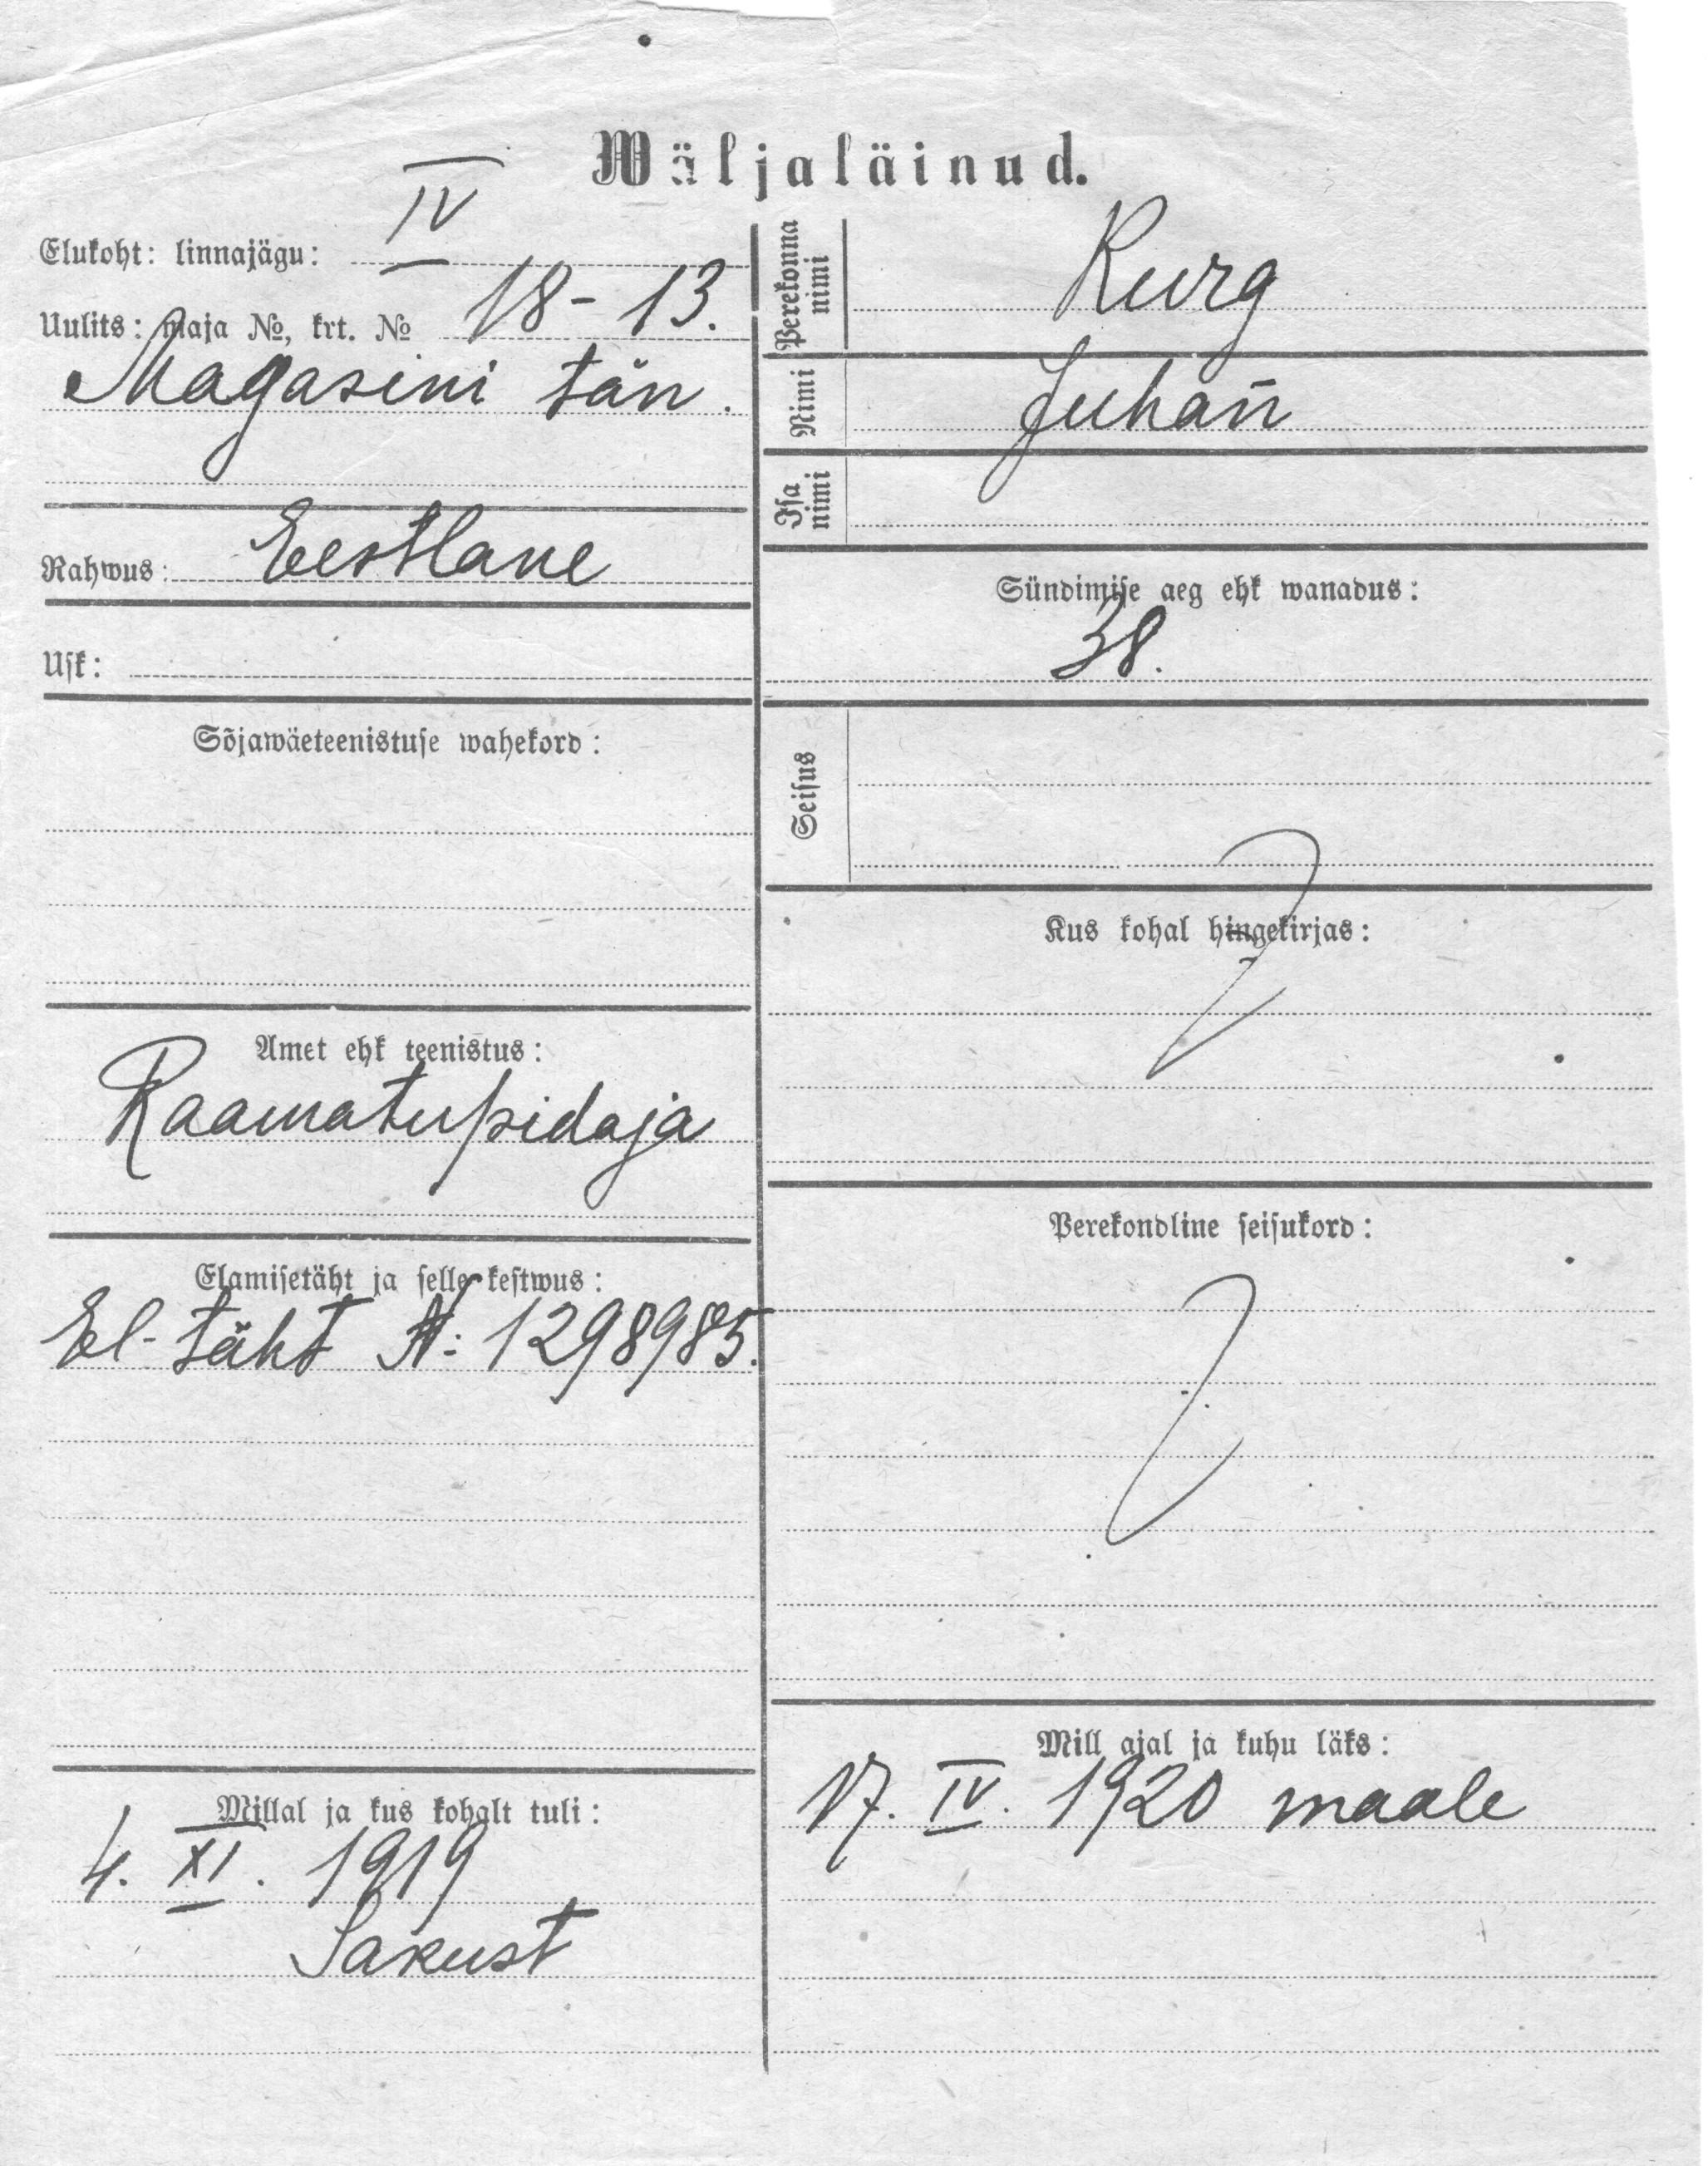 Wäljaläinud.
Elukoht: linnajägu: IV
Uulits: maja №, krt. № 18 - 13.
Magasini tän.
Rahwus: Eestlane
Usk:
Sõjawäeteenistuse wahekord:
Amet ehk teenistus:
Raamatupidaja
Elamisetäht ja selle kestwus:
El- täht №: 1298985.
Millal ja kus kohalt tuli:
4. XI. 1919
Sakust
Perekonna nimi Kurg
Nimi Juhan
Isa nimi
Sündimise aeg ehk wanadus:
38.
Seisus
Kus kohal hingekirjas:
Perekondline seisukord:
Mill ajal ja kuhu läks:
17. IV. 1920 maale